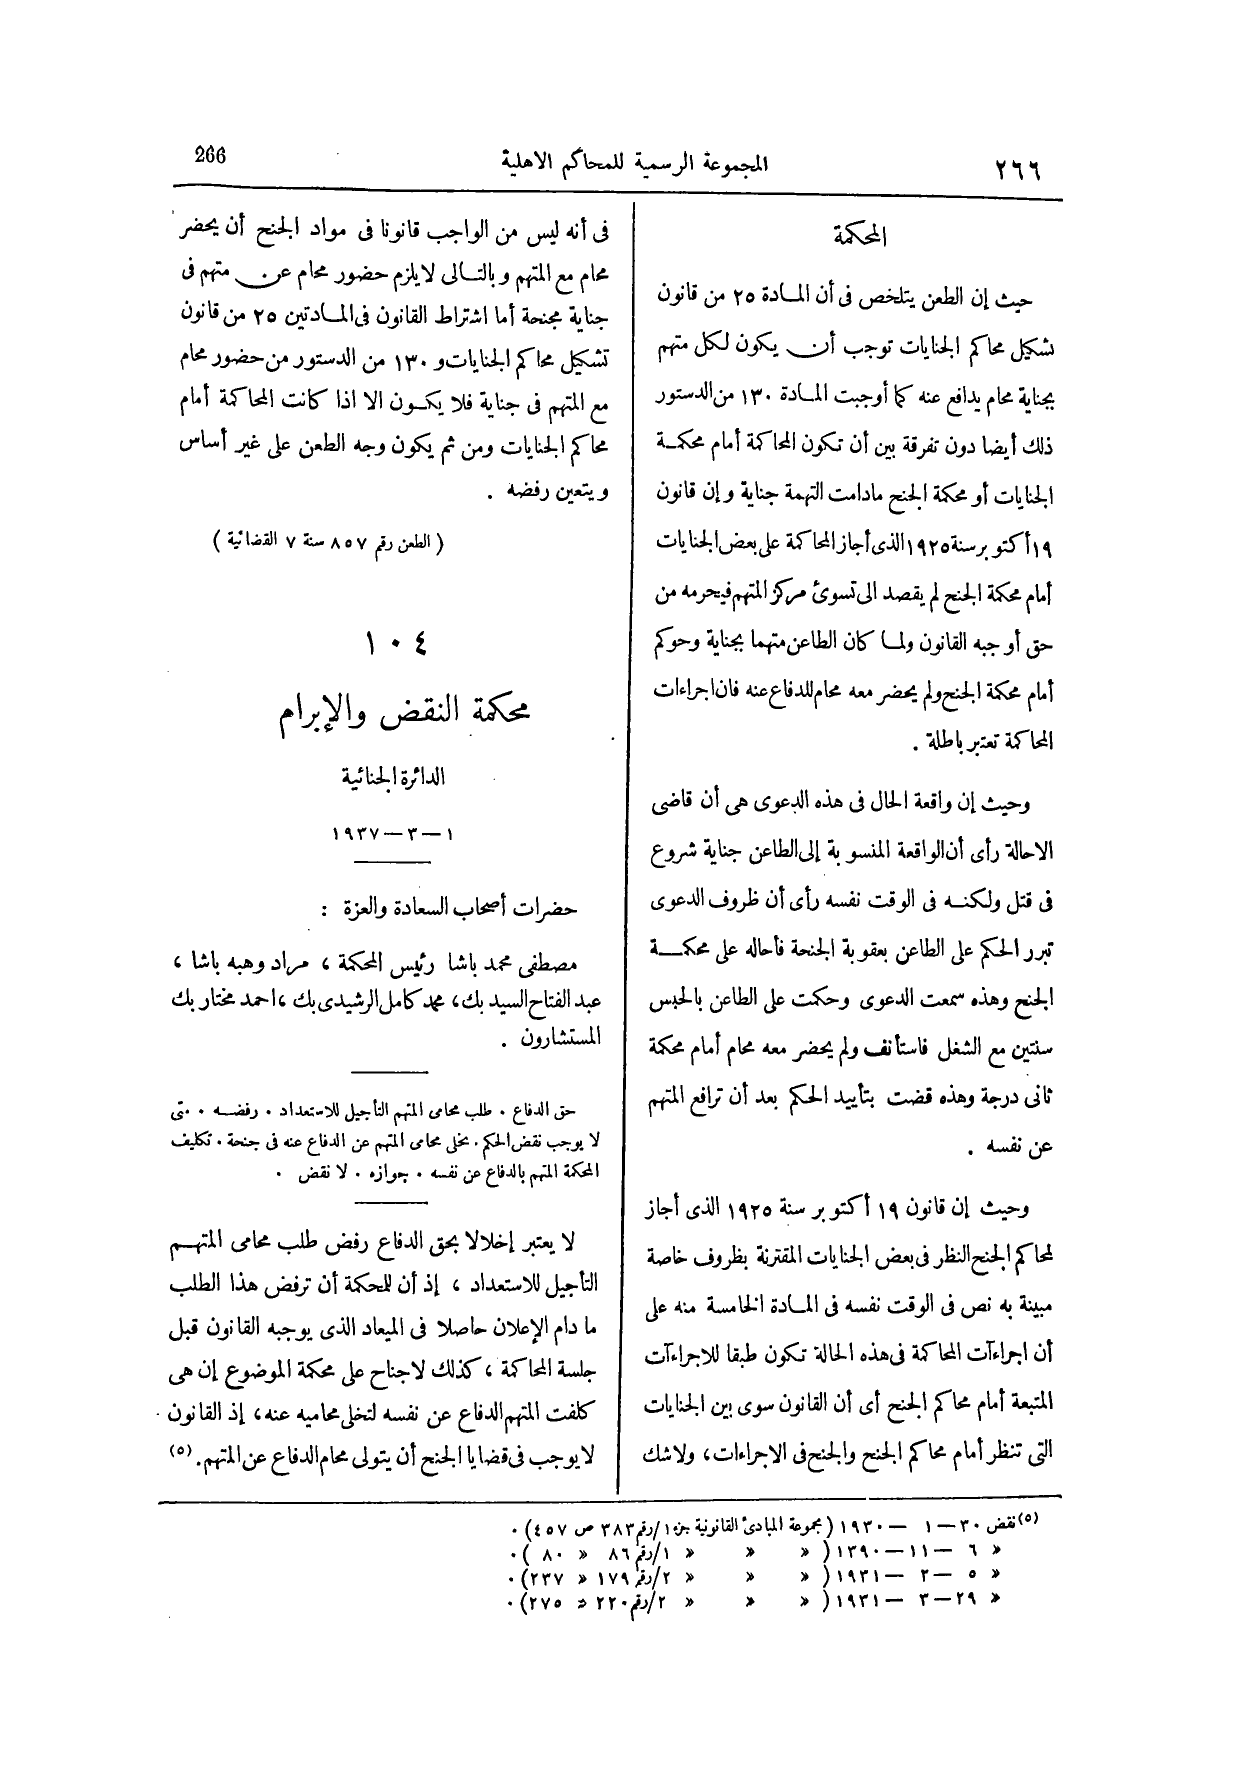 ٢٦٦
المجموعة الرسمية للمحاكم الاهلية
266
المحكمة
حيث إن الطعن يتلخص فى أن المادة ٢٥ من قانون
تشكيل محاكم الجنايات توجب أن يكون لكل متهم
بجناية محام يدافع عنه كما أوجبت المادة ١٣٠ من الدستور
ذلك أيضا دون تفرقة بين أن تكون المحاكمة أمام محكمة
الجنايات أو محكمة الجنح مادامت التهمة جناية وإن قانون
١٩ أكتوبر سنة ١٩٢٥ الذى أجاز المحاكمة على بعض الجنايات
أمام محكمة الجنح لم يقصد الى تسوئ مركز المتهم فيحرمه من
حق أوجبه القانون ولما كان الطاعن متهما بجناية وحوكم
أمام محكمة الجنح ولم يحضر معه محام للدفاع عنه فان اجراءات
المحاكمة تعتبر باطلة .
وحيث إن واقعة الحال فى هذه الدعوى هى أن قاضى
الاحالة رأى أن الواقعة المنسوبة إلى الطاعن جناية شروع
فى قتل ولكنه فى الوقت نفسه رأى أن ظروف الدعوى
تبرر الحكم على الطاعن بعقوبة الجنحة فأحاله على محكمة
الجنح وهذه سمعت الدعوى وحكمت على الطاعن بالحبس
سنتين مع الشغل فاستأنف ولم يحضر معه محام أمام محكمة
ثانى درجة وهذه قضت بتأييد الحكم بعد أن ترافع المتهم
عن نفسه .
وحيث إن قانون ١٩ أكتوبر سنة ١٩٢٥ الذى أجاز
لمحاكم الجنح النظر فى بعض الجنايات المقترنة بظروف خاصة
مبينة به نص فى الوقت نفسه فى المادة الخامسة منه على
أن اجراءآت المحاكمة فى هذه الحالة تكون طبقا للاجراءآت
المتبعة أمام محاكم الجنح أى أن القانون سوى بين الجنايات
التى تنظر أمام محاكم الجنح والجنح فى الاجراءات، ولاشك
فى أنه ليس من الواجب قانونا فى مواد الجنح أن يحضر
محام مع المتهم وبالتالى لايلزم حضور محام عن متهم فى
جناية مجنحة أما اشتراط القانون فى المادتين ٢٥ من قانون
تشكيل محاكم الجنايات و ١٣٠ من الدستور من حضور محام
مع المتهم فى جناية فلا يكون الا اذا كانت المحاكمة أمام
محاكم الجنايات ومن ثم يكون وجه الطعن على غير أساس
ويتعين رفضه .
( الطعن رقم ٨٥٧ سنة ٧ القضائية )
١٠٤
محكمة النقض والإبرام
الدائرة الجنائية
١ — ٣ — ١٩٣٧
حضرات أصحاب السعادة والعزة :
مصطفى محمد باشا رئيس المحكمة ، مراد وهبه باشا ،
عبد الفتاح السيد بك ، محمد كامل الرشيدى بك ، احمد مختار بك
المستشارون .
حق الدفاع . طلب محامى المتهم التأجيل للاستعداد . رفضه . متى
لا يوجب نقض الحكم . تخلى محامى المتهم عن الدفاع عنه فى جنحة . تكليف
المحكمة المتهم بالدفاع عن نفسه . جوازه . لا نقض .
لا يعتبر إخلالا بحق الدفاع رفض طلب محامى المتهم
التأجيل للاستعداد ، إذ أن للمحكمة أن ترفض هذا الطلب
ما دام الإعلان حاصلا فى الميعاد الذى يوجبه القانون قبل
جلسة المحاكمة ، كذلك لاجناح على محكمة الموضوع إن هى
كلفت المتهم الدفاع عن نفسه لتخلى محاميه عنه ، إذ القانون
لا يوجب فى قضايا الجنح أن يتولى محام الدفاع عن المتهم . (٥)
(٥) نقض ٣٠ — ١ — ١٩٣٠ ( مجموعة المبادئ القانونية جزء ١/رقم ٣٨٣ ص ٤٥٧ ) .
« ٦ — ١١ — ١٣٩٠ ( « « « ١/رقم ٨٦ « ٨٠ ) .
« ٥ — ٢ — ١٩٣١ ( « « « ٢/رقم ١٧٩ « ٢٣٧ ) .
« ٢٩ — ٣ — ١٩٣١ ( « « « ٢/رقم ٢٢٠ « ٢٧٥ ) .